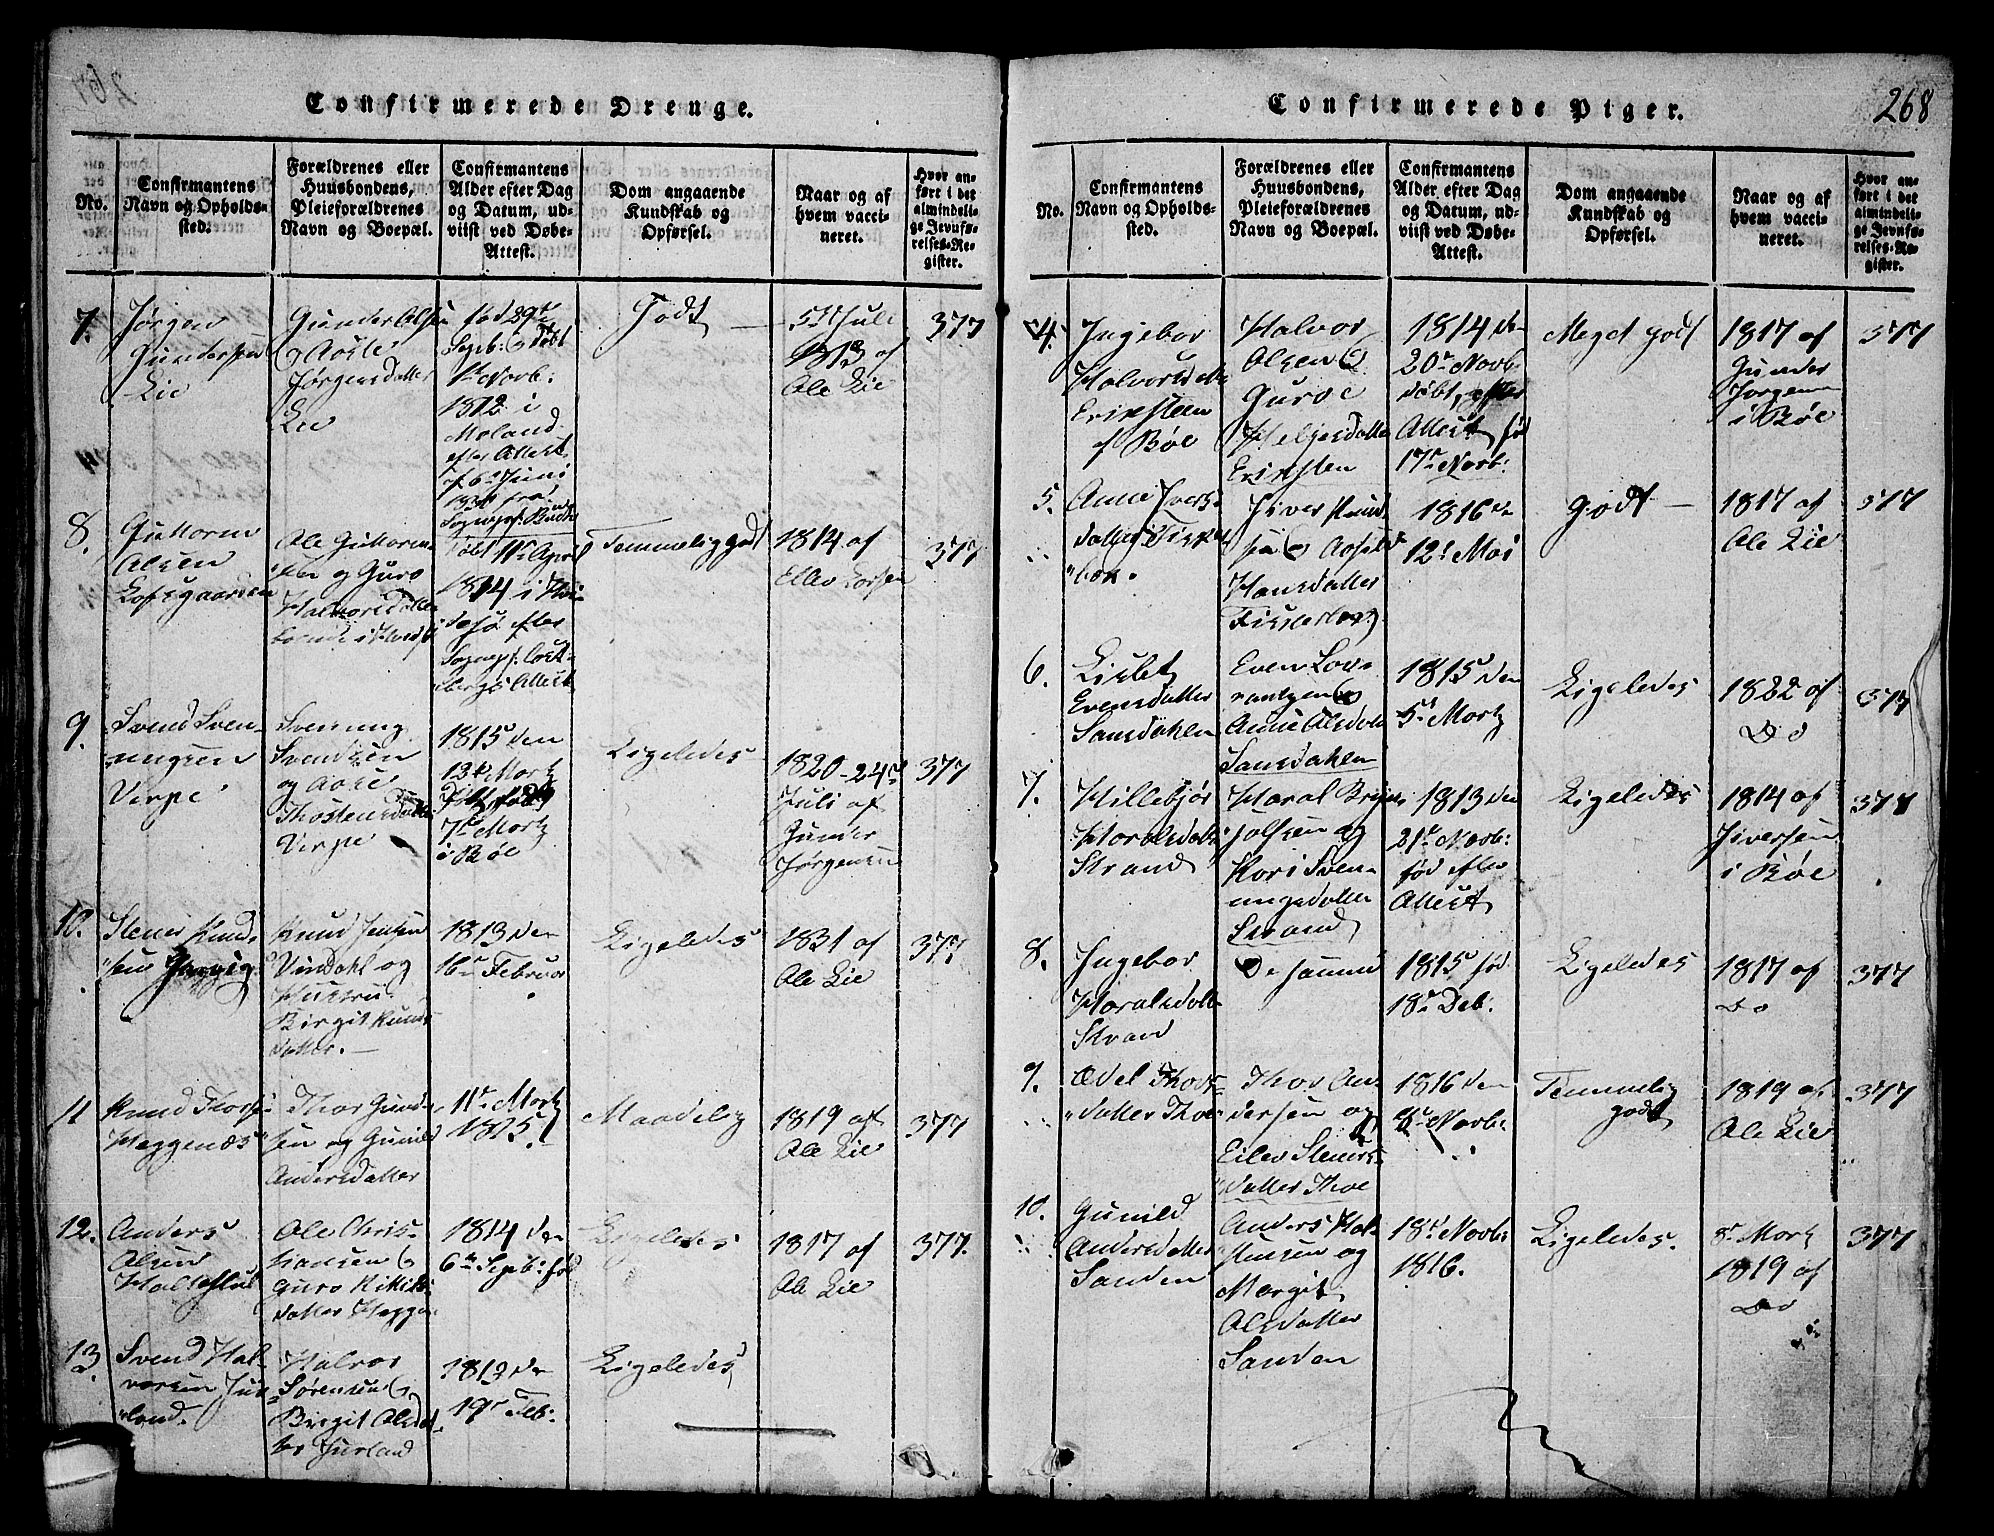 268
Confirmerede Drenge.
No.
Confirmantens
Navn og Opholds-
sted.
Forældrenes eller
Huusbondens,
Pleieforældrenes
Navn og Boepæl.
Confirmantens
Alder efter Dag
og Datum, ud-
viist ved Døbe-
Attest.
Dom angaaende
Kundskab og
Opførsel.
Naar og af
hvem vacci-
neret.
Hvor an-
ført i det
almindeli-
ge Jevnfø-
relses-Re-
gister.
7.
Jørgen
Gundersen
Lie
Gunder Olsen
og Aaste
Jørgensdatter
Lie
fød 29de
Septb: og døbt
1t Novb:
1812 i
Moland
efter Attest
af 6t Juni
fra
Sognepr:
Godt
Juli
1813 af
Ole Lie
377
8.
Guttorm
Olsen
Lofsgaarden
Ole Guttorm-
sen og Guro
Halvorsdatter
Døbt 11te April
1814 i Hvi-
desø efter
Sognepr:
Attest
Temmelig godt
1814 af
Ellev Larsen
377
9.
Svend Sven-
ungsen
Verpe
Svenung
Svendsen
og Aase
Thostensdatter
Verpe
1815 den
12te Martz
7de Martz
i Bøe
Ligeledes
1820 - 24de
Juli af
Gunder
Jørgensen
377
10.
Stener Knud-
sen
Knud Jensen
Vindahl og
Hustru
Birgit Knuds-
datter.
1813 den
16de Februar
Ligeledes
1831 af
Ole Lie
377
11
Knud Thors:
Heggenæs
Thor Gund-
sen og Gunild
Andersdatter
11te Martz
1815
Maadelig
1819 af
Ole Lie
377
12.
Anders
Olsen
Ole Chris-
tiansen og
Guro Kittils-
datter
1814 den
6te Septb: fød
Ligeledes
1817 af
Ole Lie
377.
13.
Svend Hal-
vorsen Jur-
land.
Halvor
Sørensen og
Birgit Olsdat-
ter Jurland
den
19de Feb:
Ligeledes
Confirmerede Piger.
No.
Confirmantens
Navn og Opholds-
sted.
Forældrenes eller
Huusbondens,
Pleieforældrenes
Navn og Boepæl.
Confirmantens
Alder efter Dag
og Datum, ud-
viist ved Døbe-
Attest.
Dom angaaende
Kundskab og
Opførsel.
Naar og af
hvem vacci-
neret.
Hvor an-
ført i det
almindeli-
ge Jevnfø-
relses-Re-
gister.
4.
Ingebor
Halvorsdatter
Eriksteen
af Bøe
Halvor
Olsen og
Guroe
Heljesdatter
Eriksten
1814 den
20de Novb:
døbt, efter
Attest, fød
17de Novb:
Meget godt
1817 af
Gunder
Jørgensen
i Bøe
377
5.
Anne Ivers-
datter
Iver Knud-
sen og
Hansdatter
1816 den
12te Mai
Godt
1817 af
Ole Lie
377
6.
Lislet
Evensdatter
Sansdahlen
Even Lov-
rantzen og
Anne Olsdatter
Sansdahlen
1815 den
5te Martz
Ligeledes
1822 af
Do
377
7.
Hillebjør
Haralsdatter
Strand
Haral Bryn-
julfsen og
Kari Sven-
ungsdatter
Strand
1813 den
21de Novb:
fød efter
Attest
Ligeledes
1814 af
Iversen
i Bøe
377
8.
Ingebor
Haralsdatter
Strand
De samme
1815 fød
18de Deb:
Ligeledes
1817 af
Do
377
9.
Thors-
datter Thoe
Thor An-
dersen og
Steners-
datter Thoe
1816 den
Novb:
Temmelig
godt
1819 af
Ole Lie
377
10.
Gunild
Andersdatter
Sanden
Anders Hal-
og
Margit
Olsdatter
Sanden
18de Novb:
1816.
Ligeledes.
8de Martz
1819 af
Do
377